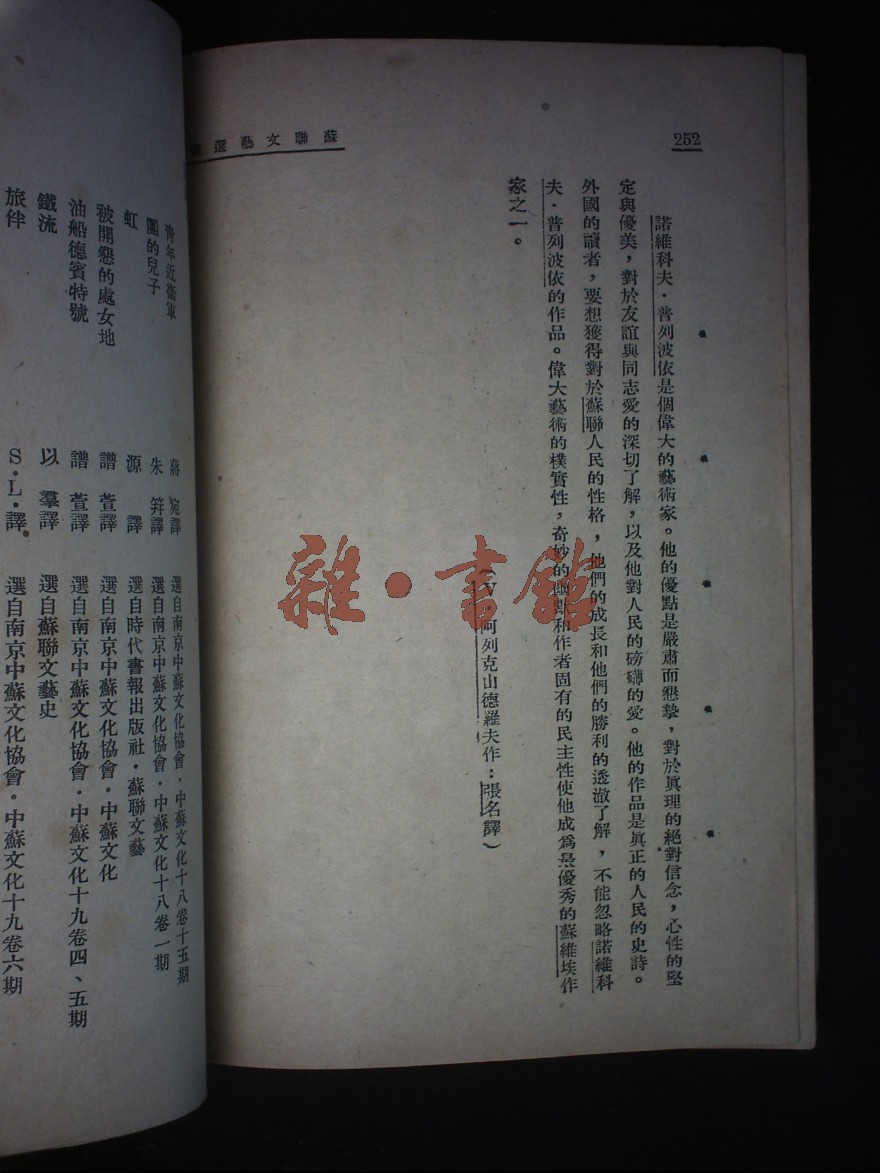 252
蘇聯文藝選
諾維科夫·普列波依是個偉大的藝術家。他的優點是嚴肅而懇摯，對於眞理的絕對信念，心性的堅
定與優美，對於友誼與同志愛的深切了解，以及他對人民的磅礴的愛。他的作品是眞正的人民的史詩。
外國的讀者，要想獲得對於蘇聯人民的性格，他們的成長和他們的勝利的透澈了解，不能忽略諾維科
夫·普列波依的作品。偉大藝術的樸實性，奇妙的幽默和作者固有的民主性使他成爲最優秀的蘇維埃作
家之一。
（V·阿列克山德羅夫作：張名譯）
雜·書館
青年近衞軍 蔣 宛譯 選自南京中蘇文化協會·中蘇文化十八卷十五期
團的兒子 朱 笄譯 選自南京中蘇文化協會·中蘇文化十八卷一期
虹 源 譯 選自時代書報出版社·蘇聯文藝
被開懇的處女地 譜 萱譯 選自南京中蘇文化協會·中蘇文化
油船德賓特號 譜 萱譯 選自南京中蘇文化協會·中蘇文化十九卷四、五期
鐵流 以 羣譯 選自蘇聯文藝史
旅伴 S·L·譯 選自南京中蘇文化協會·中蘇文化十九卷六期